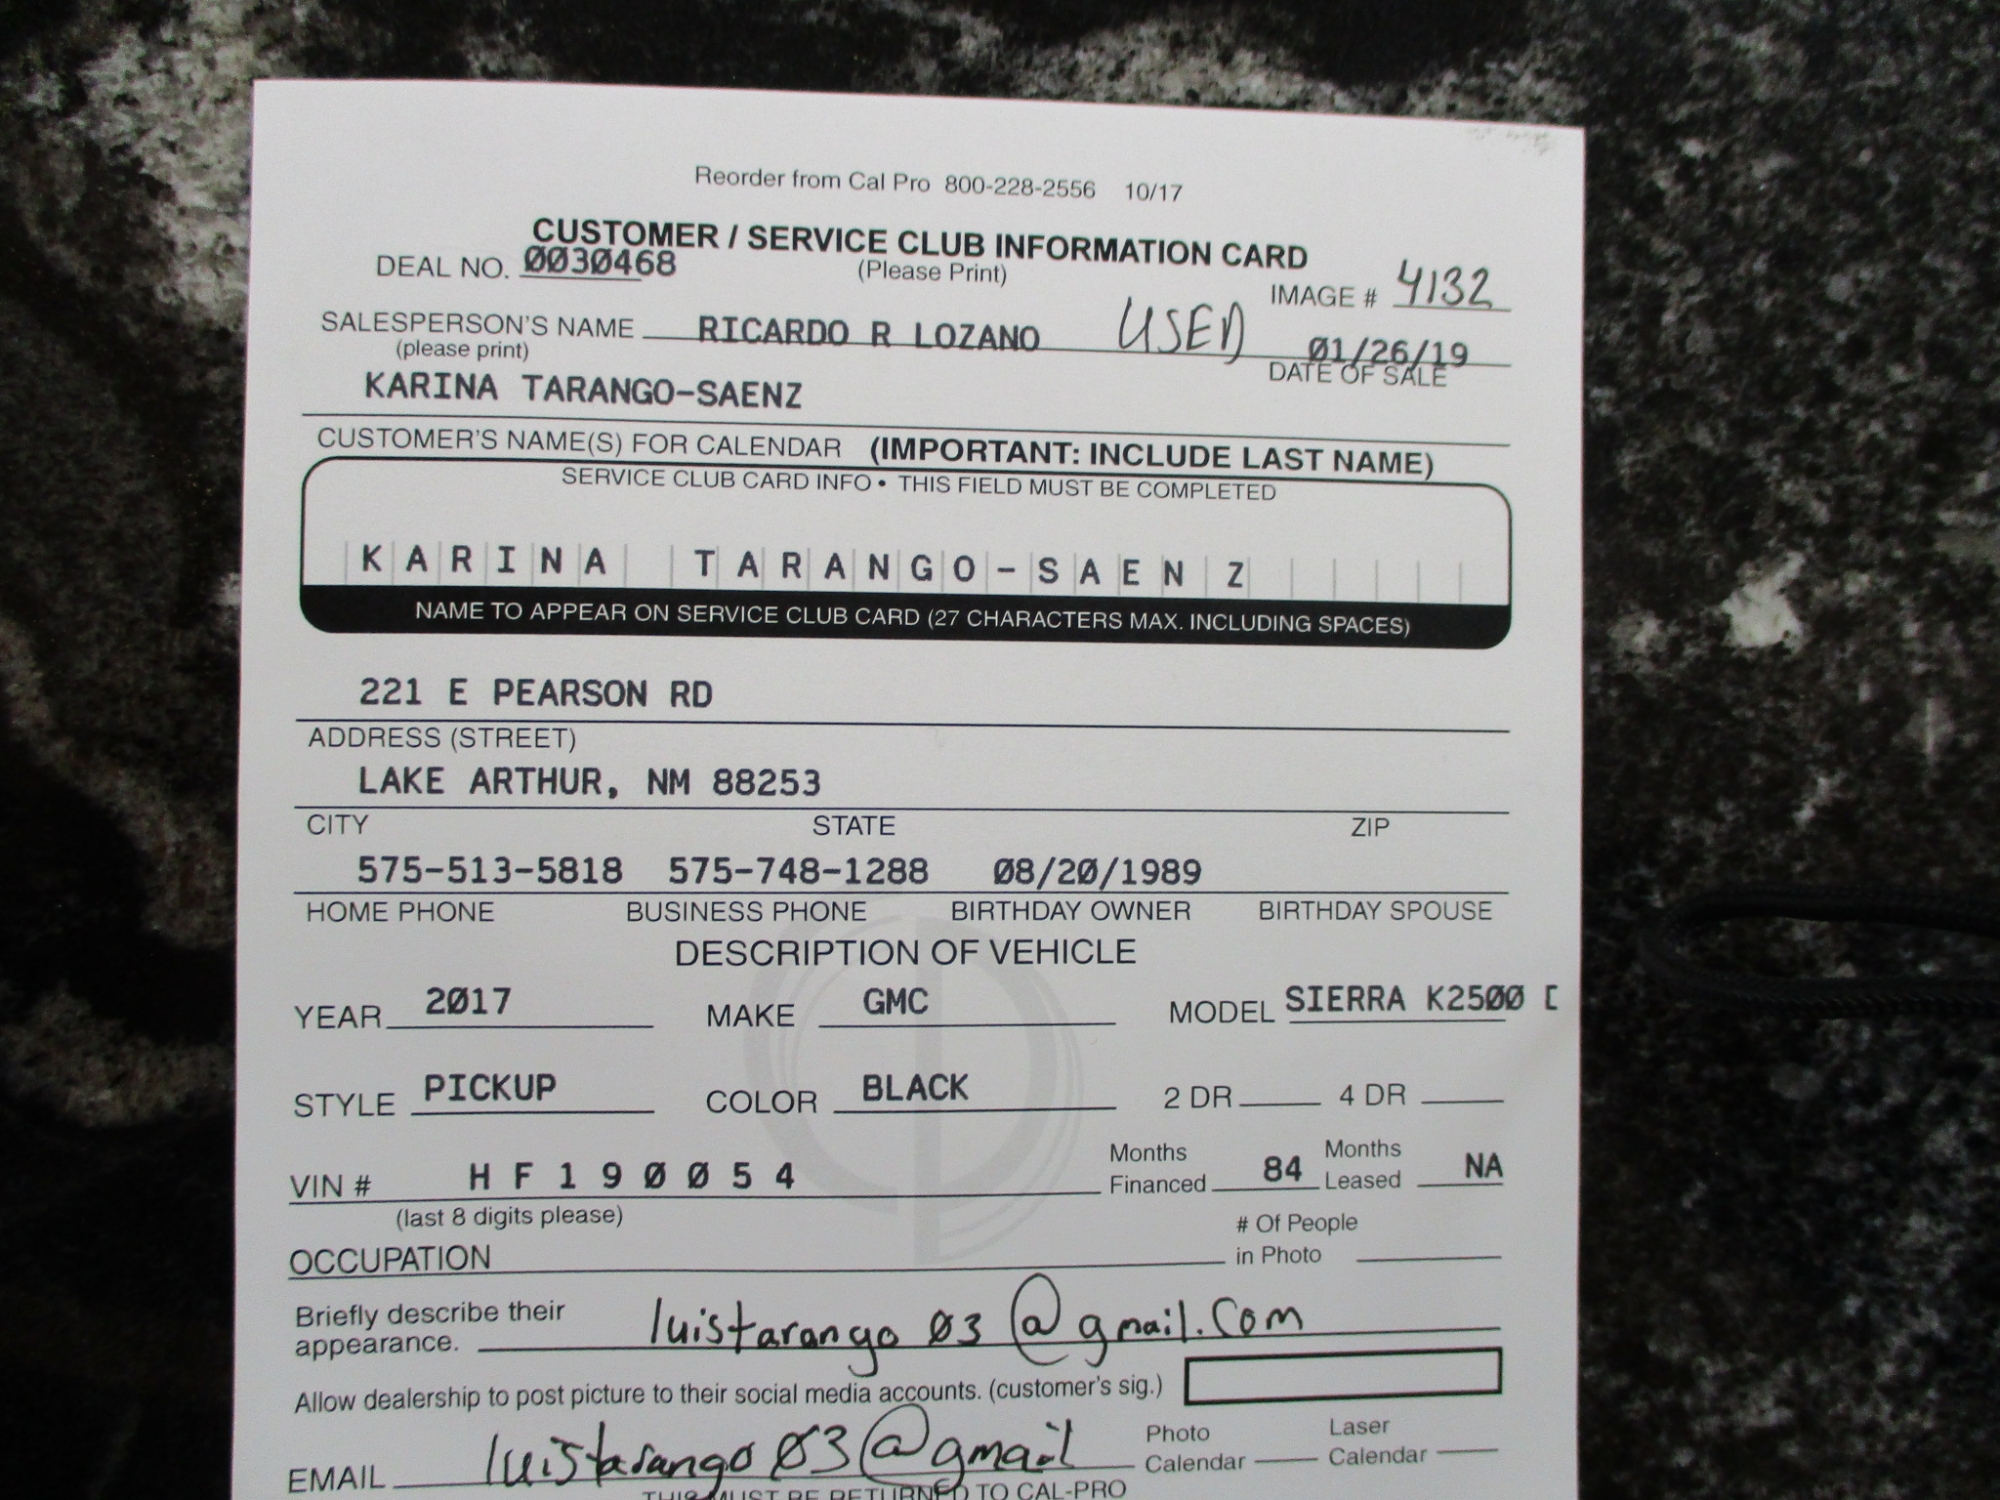 Reorder from Cal Pro 800-228-2556 10/17
CUSTOMER / SERVICE CLUB INFORMATION CARD
DEAL NO. 0030468 (Please Print) IMAGE # 4132
SALESPERSON'S NAME RICARDO R LOZANO USED 01/26/19
(please print) DATE OF SALE
KARINA TARANGO-SAENZ
CUSTOMER'S NAME(S) FOR CALENDAR (IMPORTANT: INCLUDE LAST NAME)
SERVICE CLUB CARD INFO • THIS FIELD MUST BE COMPLETED
KARINA TARANGO-SAENZ
NAME TO APPEAR ON SERVICE CLUB CARD (27 CHARACTERS MAX. INCLUDING SPACES)
221 E PEARSON RD
ADDRESS (STREET)
LAKE ARTHUR, NM 88253
CITY STATE ZIP
575-513-5818 575-748-1288 08/20/1989
HOME PHONE BUSINESS PHONE BIRTHDAY OWNER BIRTHDAY SPOUSE
DESCRIPTION OF VEHICLE
YEAR 2017 MAKE GMC MODEL SIERRA K2500
STYLE PICKUP COLOR BLACK 2 DR 4 DR
VIN # HF190054 Months Financed 84 Months Leased NA
(last 8 digits please)
OCCUPATION # Of People in Photo
Briefly describe their appearance. luistarango03@gmail.com
Allow dealership to post picture to their social media accounts. (customer's sig.)
EMAIL luistarango03@gmail Photo Calendar Laser Calendar
THIS MUST BE RETURNED TO CAL-PRO